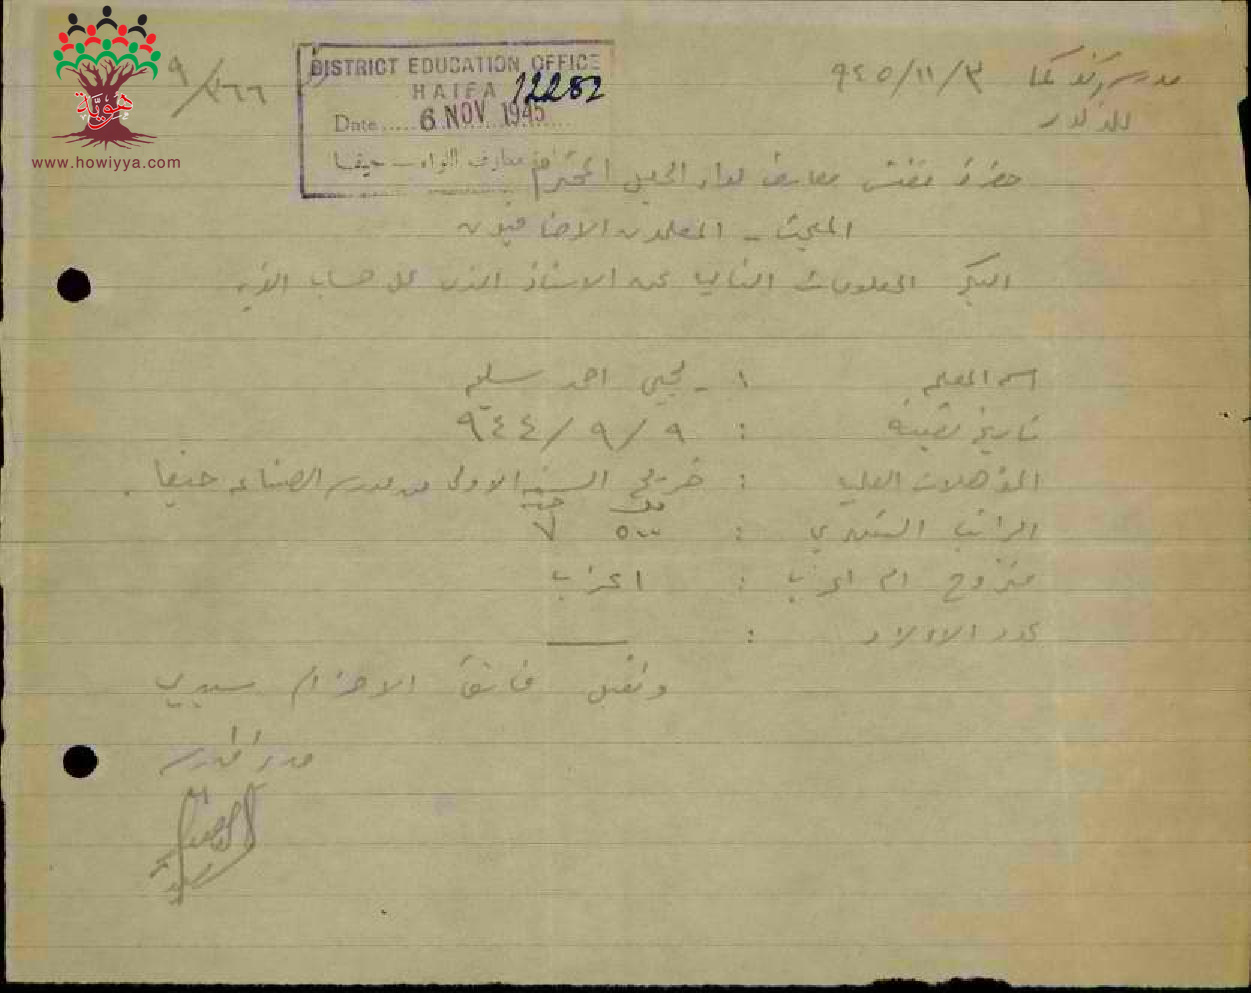 هوية
www.howiyya.com
DISTRICT EDUCATION OFFICE
HAIFA 12282
Date..... 6 NOV 1945
معارف اللواء - حيفا
٩/٢٦٦
مدرسة ٩٤٥/١١/٣
للذكور
حضرة مفتش معارف لواء الجليل المحترم
المبحث - المعلمون الاضافيون
اليكم المعلومات التالية عن الاستاذ الذي على حساب القرية
اسم المعلم ١ - يحيى احمد سليم
تاريخ تعيينه : ٩ / ٩ / ٩٤٤
المؤهلات العليا : خريج السنة الاولى من مدرسة الصناعة حيفا .
الراتب الشهري : ٥٠٠ مل ٧ جنيه
متزوج ام اعزب : اعزب
عدد الاولاد : ــــ
وتقبل فائق الاحترام سيدي
مدير المدرسة